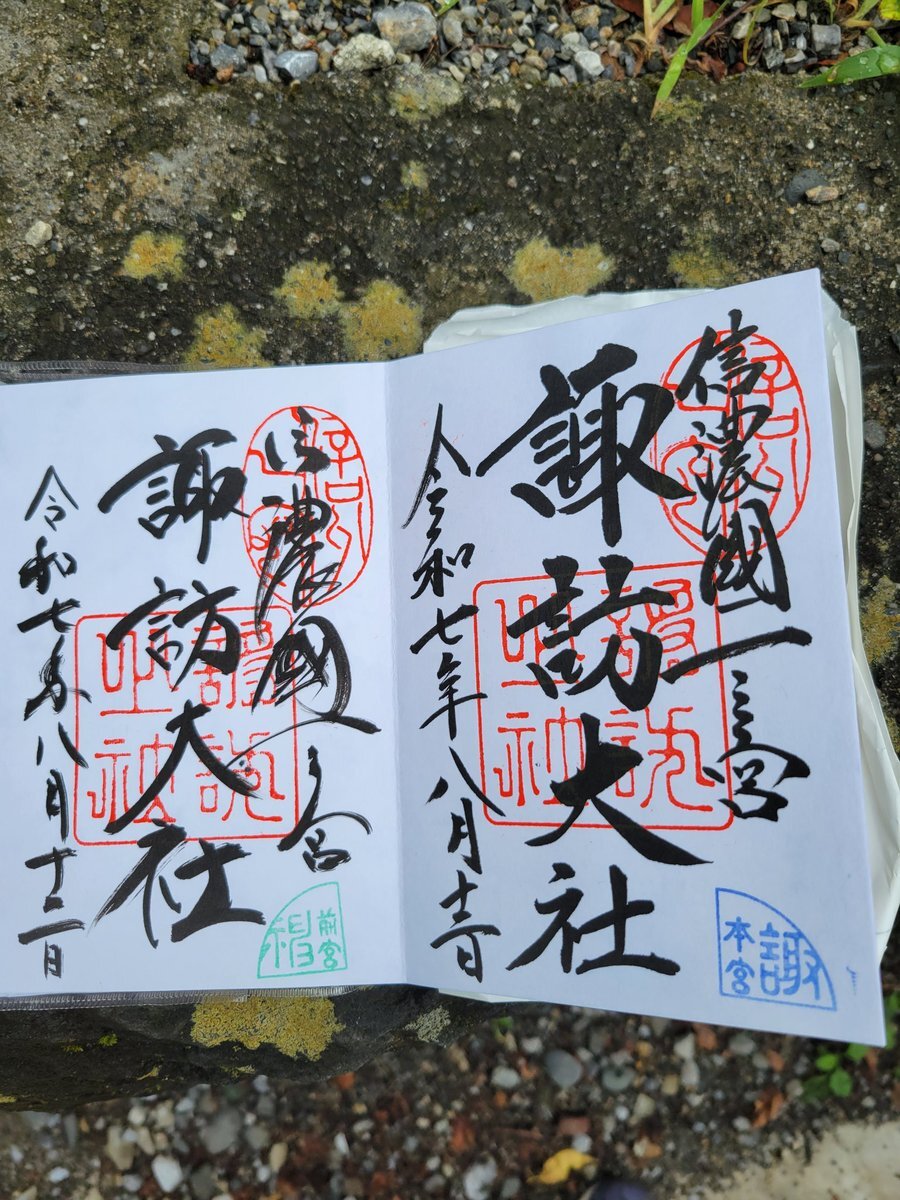 信濃國一之宮
諏訪大社
令和七年八月十二日
本宮
諏
信濃國一之宮
諏訪大社
令和七年八月十二日
前宮